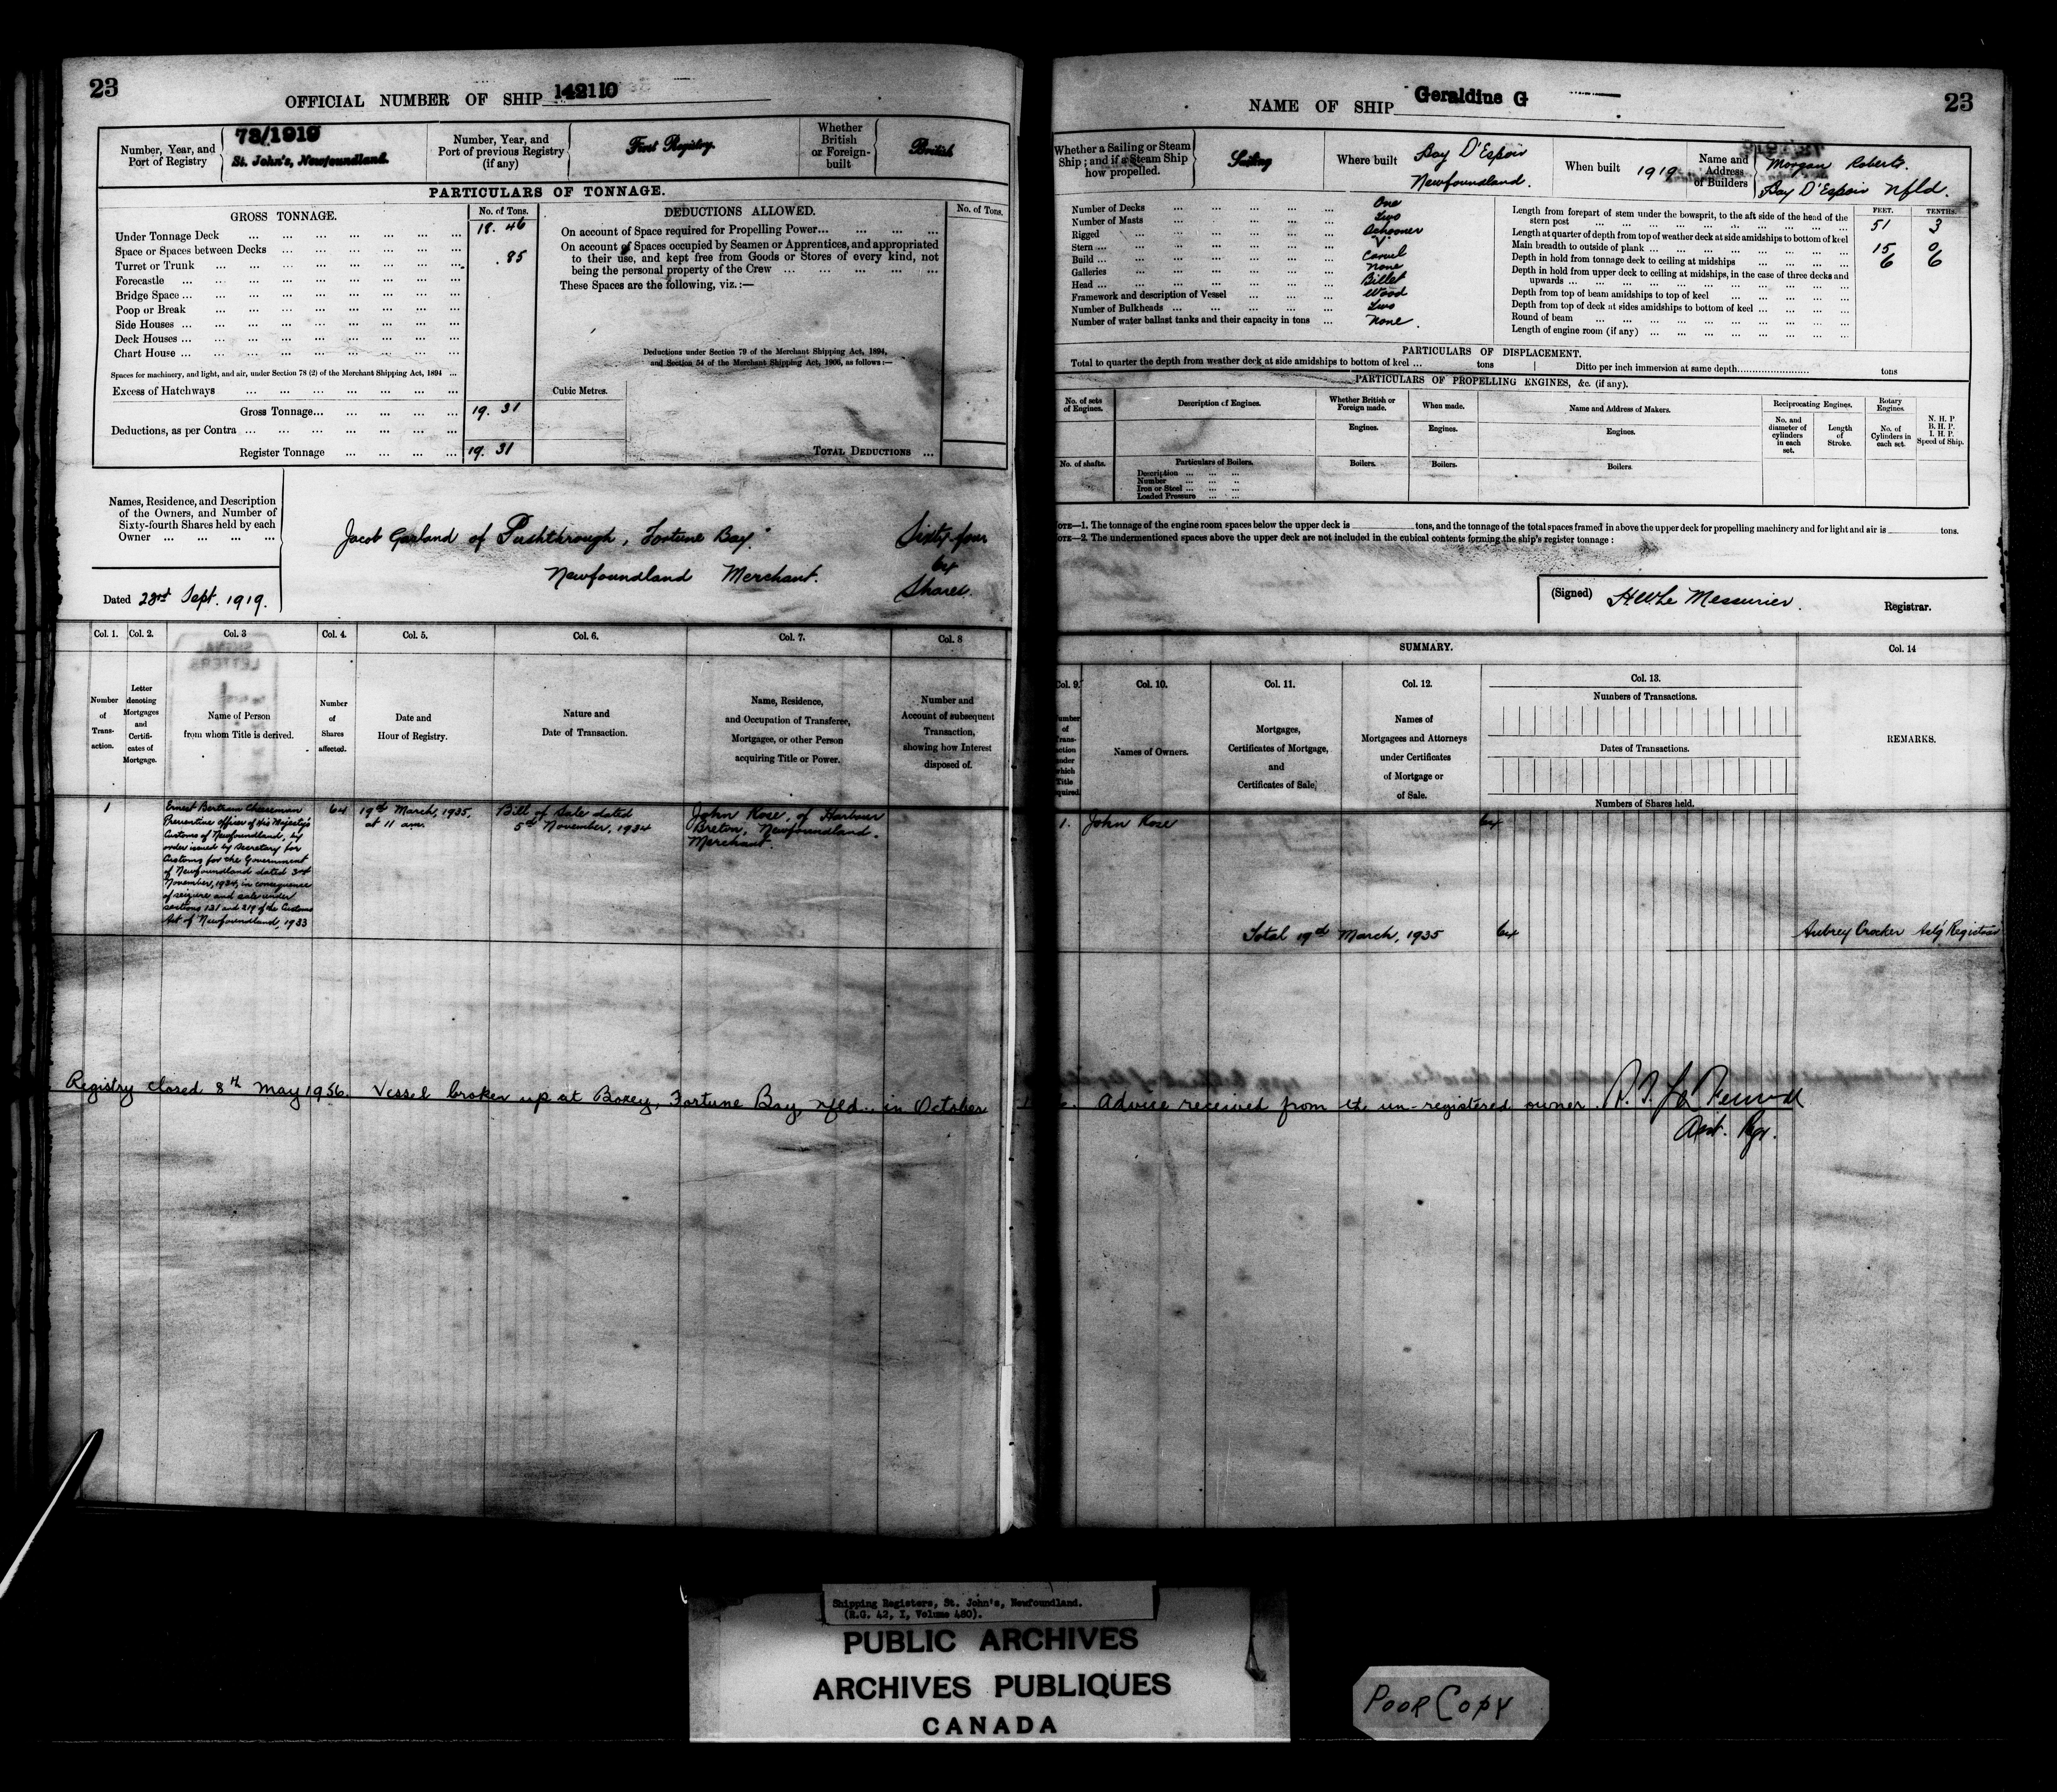 23
OFFICIAL NUMBER OF SHIP 142110
Number, Year, and Port of Registry
73/1919
St. John's, Newfoundland.
Number, Year, and Port of previous Registry (if any)
First Registry.
Whether British or Foreign-built
British
PARTICULARS OF TONNAGE.
GROSS TONNAGE.
No. of Tons.
Under Tonnage Deck ... 18. 46
Space or Spaces between Decks ... . 85
Turret or Trunk ...
Forecastle ...
Bridge Space ...
Poop or Break ...
Side Houses ...
Deck Houses ...
Chart House ...
Spaces for machinery, and light, and air, under Section 78 (2) of the Merchant Shipping Act, 1894 ...
Excess of Hatchways ...
Gross Tonnage... 19. 31
Deductions, as per Contra ...
Register Tonnage ... 19. 31
DEDUCTIONS ALLOWED.
No. of Tons.
On account of Space required for Propelling Power...
On account of Spaces occupied by Seamen or Apprentices, and appropriated
to their use, and kept free from Goods or Stores of every kind, not
being the personal property of the Crew ...
These Spaces are the following, viz.:—
Deductions under Section 79 of the Merchant Shipping Act, 1894,
and Section 54 of the Merchant Shipping Act, 1906, as follows:—
Cubic Metres.
TOTAL DEDUCTIONS ...
Names, Residence, and Description
of the Owners, and Number of
Sixty-fourth Shares held by each
Owner ...
Jacob Garland of Pushthrough, Fortune Bay. Sixty-four
64
Newfoundland Merchant. Shares.
Dated 23rd Sept. 1919.
Col. 1. Col. 2. Col. 3 Col. 4. Col. 5. Col. 6. Col. 7. Col. 8
Number of Transaction.
Letter denoting Mortgages and Certificates of Mortgage.
Name of Person from whom Title is derived.
Number of Shares affected.
Date and Hour of Registry.
Nature and Date of Transaction.
Name, Residence, and Occupation of Transferee, Mortgagee, or other Person acquiring Title or Power.
Number and Account of subsequent Transaction, showing how Interest disposed of.
1
Ernest Bertram Cheeseman
Preventive Officer of His Majesty's
Customs of Newfoundland, by
order issued by Secretary for
Customs for the Government
of Newfoundland dated 3rd
November, 1934, in consequence
of seizure and sale under
sections 131 and 219 of the Customs
Act of Newfoundland, 1933
64
19th March, 1935,
at 11 am.
Bill of Sale dated
5th November, 1934
John Rose, of Harbour
Breton, Newfoundland.
Merchant.
Registry closed 8th May 1956. Vessel broken up at Boxey, Fortune Bay, Nfld., in October
NAME OF SHIP Geraldine G
23
Whether a Sailing or Steam Ship; and if a Steam Ship how propelled.
Sailing
Where built
Bay D'Espoir
Newfoundland.
When built 1919
Name and Address of Builders
Morgan Roberts.
Bay D'Espoir Nfld.
Number of Decks ... One
Number of Masts ... Two
Rigged ... Schooner
Stern ... "V"
Build ... Carvel
Galleries ... None
Head ... Billet
Framework and description of Vessel ... Wood
Number of Bulkheads ... Two
Number of water ballast tanks and their capacity in tons ... None.
FEET. TENTHS.
Length from forepart of stem under the bowsprit, to the aft side of the head of the
stern post ... 51 3
Length at quarter of depth from top of weather deck at side amidships to bottom of keel
Main breadth to outside of plank ... 15 0
Depth in hold from tonnage deck to ceiling at midships ... 6 6
Depth in hold from upper deck to ceiling at midships, in the case of three decks and
upwards ...
Depth from top of beam amidships to top of keel ...
Depth from top of deck at sides amidships to bottom of keel ...
Round of beam ...
Length of engine room (if any) ...
PARTICULARS OF DISPLACEMENT.
Total to quarter the depth from weather deck at side amidships to bottom of keel ... tons
Ditto per inch immersion at same depth... tons
PARTICULARS OF PROPELLING ENGINES, &c. (if any).
No. of sets of Engines.
Description of Engines.
Whether British or Foreign made.
When made.
Name and Address of Makers.
Reciprocating Engines.
Rotary Engines.
N. H. P
B. H. P.
I. H. P.
Speed of Ship.
Engines. Engines. Engines.
No. and diameter of cylinders in each set.
Length of Stroke.
No. of Cylinders in each set.
No. of shafts.
Particulars of Boilers.
Description ...
Number ...
Iron or Steel ...
Loaded Pressure ...
Boilers. Boilers. Boilers.
NOTE—1. The tonnage of the engine room spaces below the upper deck is tons, and the tonnage of the total spaces framed in above the upper deck for propelling machinery and for light and air is tons.
NOTE—2. The undermentioned spaces above the upper deck are not included in the cubical contents forming the ship's register tonnage:
(Signed) H.W. Le Messurier. Registrar.
SUMMARY.
Col. 14
Col. 9. Col. 10. Col. 11. Col. 12. Col. 13.
Number of Transaction under which Title acquired.
Names of Owners.
Mortgages, Certificates of Mortgage, and Certificates of Sale.
Names of Mortgagees and Attorneys under Certificates of Mortgage or of Sale.
Numbers of Transactions.
Dates of Transactions.
Numbers of Shares held.
REMARKS.
1. John Rose 64
Total 19th March, 1935 64
Aubrey Crocker Actg Registrar
Advise received from the un-registered owner.
Asst. Rgr.
Shipping Registers, St. John's, Newfoundland.
(R.G. 42, I, Volume 480).
PUBLIC ARCHIVES
ARCHIVES PUBLIQUES
CANADA
POOR COPY